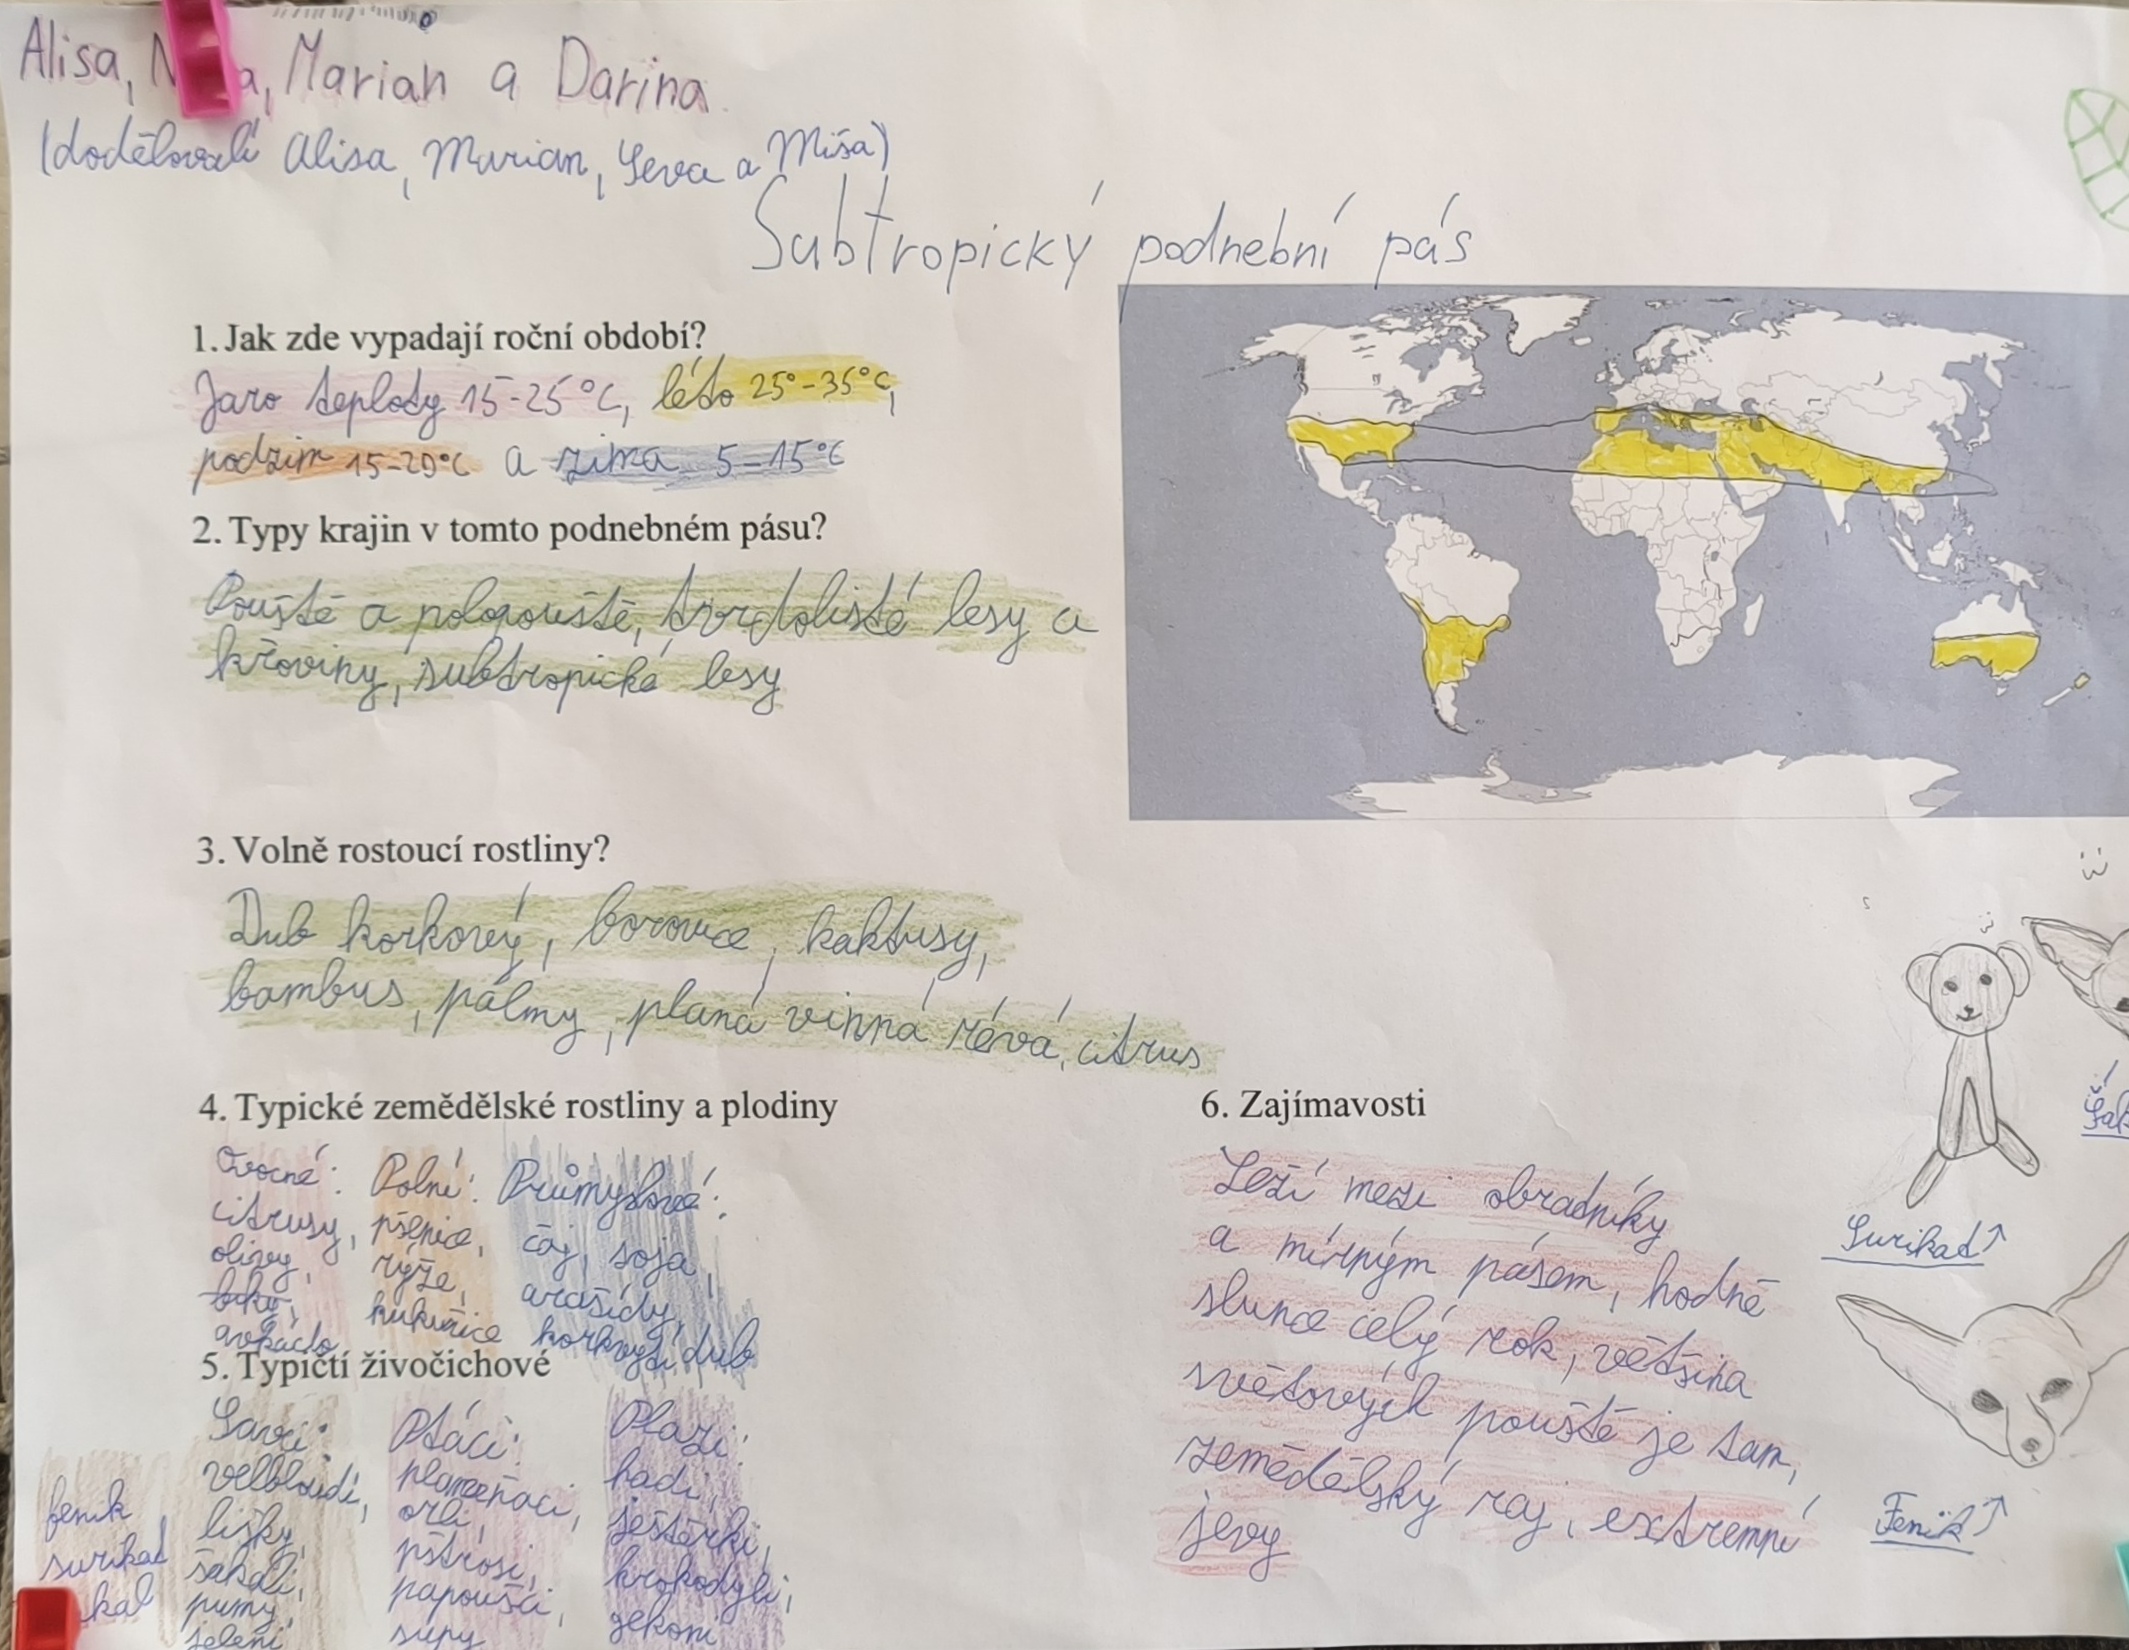 Alisa, Marian a Darina
(dodělovali Alisa, Marian, Seva a Míša)
Subtropický podnební pás
1. Jak zde vypadají roční období?
Jaro teploty 15-25°C, léto 25°-35°C,
podzim 15-20°C a zima 5-15°C
2. Typy krajin v tomto podnebném pásu?
Pouště a polopouště, tvrdolisté lesy a
křoviny, subtropické lesy
3. Volně rostoucí rostliny?
Dub korkový, borovice, kaktusy,
bambus, pálmy, planá vinná révá, citrus
4. Typické zemědělské rostliny a plodiny
Ovocné:
citrusy,
olivy,
avokádo
Polní:
pšenice,
rýže,
kukuřice
Průmyslové:
čaj, soja,
arašídy,
korkový dub
5. Typičtí živočichové
Savci:
velbloudi,
lišky,
šakali,
pumy,
jeleni
fenik
surikat
Ptáci:
plameňaci,
orli,
pštrosi,
papoušci,
supy
Plazi:
hadi,
ještěrki,
krokodyli,
gekoni
6. Zajímavosti
Leží mezi obratníky
a mírným pásem, hodně
slunce celý rok, většina
světových pouště je tam,
zemědělský raj, extremní
jevy
Surikat↑
Fenik↑